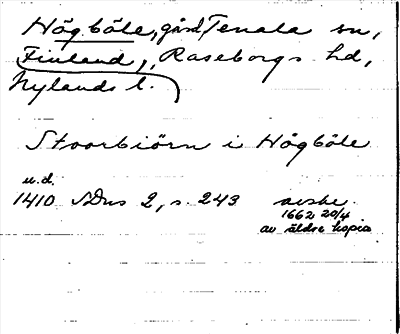 Högböle, gård, Tenala sn,
Finland, Raseborgs hd,
Nylands l.
Stoorbiörn i Högböle
u.d.
1410 SDns 2, s. 243 avskr.
1662 20/4
av äldre kopia